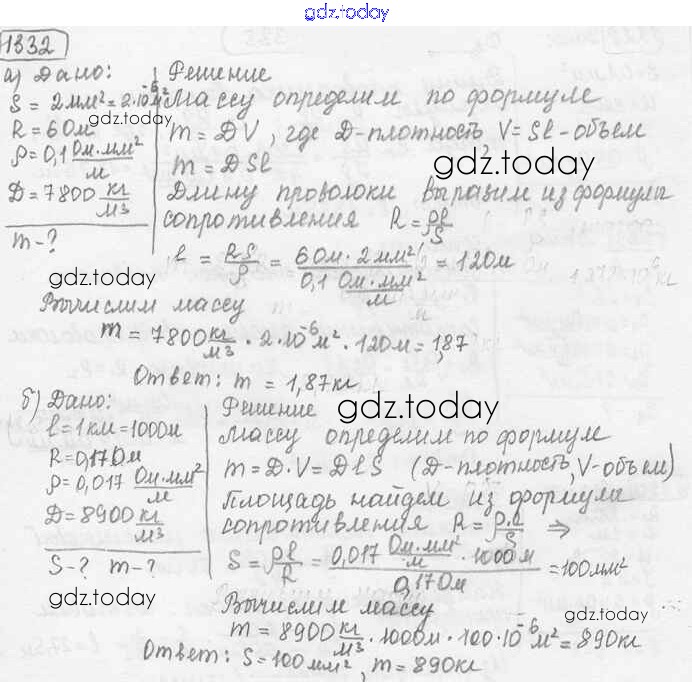 gdz.today
1332
а) Дано:
S = 2 мм² = 2·10⁻⁶ м²
gdz.today
R = 6 Ом
ρ = 0,1 Ом·мм²/м
D = 7800 кг/м³
m - ?
Решение
Массу определим по формуле
m = DV, где D - плотность, V = Sl - объем
m = DSl
gdz.today
Длину проволоки выразим из формулы
сопротивления R = ρl/S
l = RS/ρ = 6 Ом · 2 мм² / 0,1 Ом·мм²/м = 120 м
gdz.today
Вычислим массу
m = 7800 кг/м³ · 2·10⁻⁶ м² · 120 м = 1,87
Ответ: m = 1,87 кг
б) Дано:
l = 1 км = 1000 м
R = 0,17 Ом
ρ = 0,017 Ом·мм²/м
D = 8900 кг/м³
S - ? m - ?
gdz.today
Решение
gdz.today
Массу определим по формуле
m = D·V = DlS (D - плотность, V - объем)
Площадь найдем из формулы
сопротивления R = ρ·l/S ⇒
S = ρl/R = 0,017 Ом·мм²/м · 1000 м / 0,17 Ом = 100 мм²
Вычислим массу
gdz.today
m = 8900 кг/м³ · 1000 м · 100·10⁻⁶ м² = 890 кг
Ответ: S = 100 мм², m = 890 кг